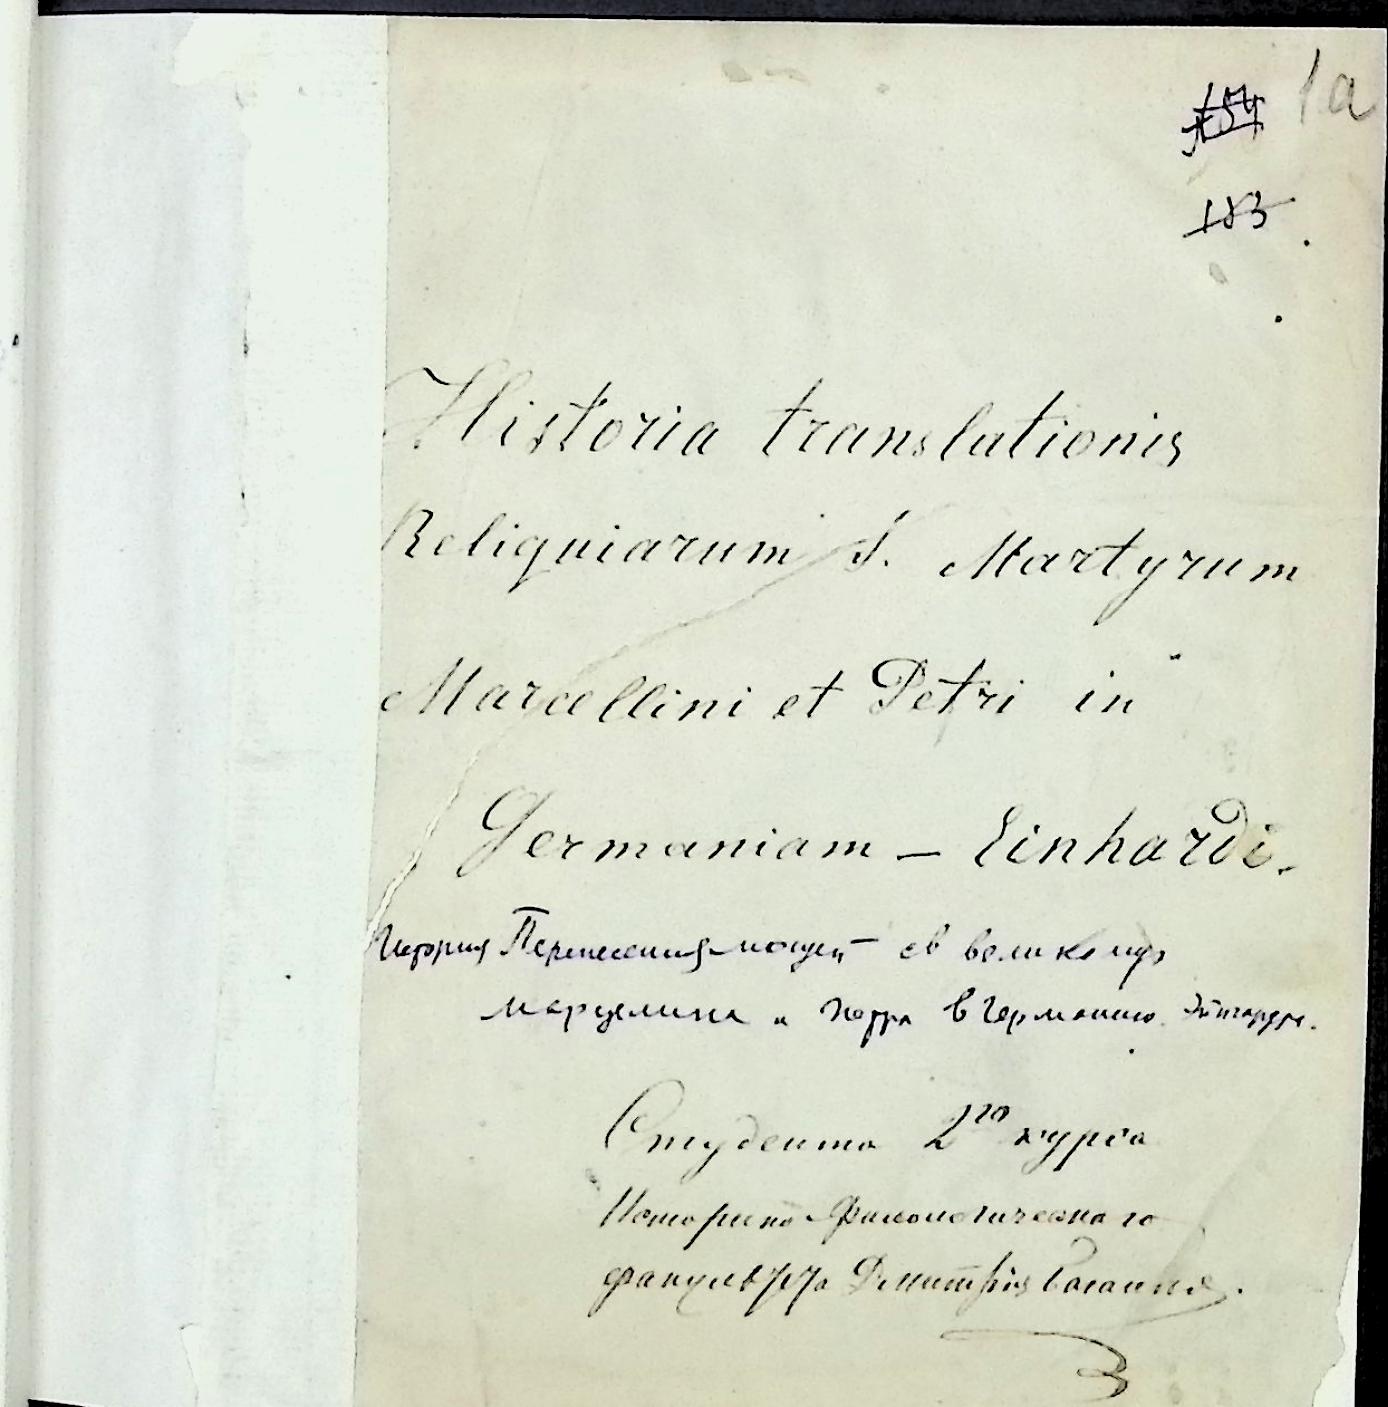 1а
183
Historia translationis
Reliquiarum S. Martyrum
Marcellini et Petri in
Germaniam — Einhardi.
История Перенесения мощей св
Марцелина и Петра в Германию Эйнгарда.
Студента 2го курса
Историко-Филологическаго
факультета Дмитрія Багалѣя.